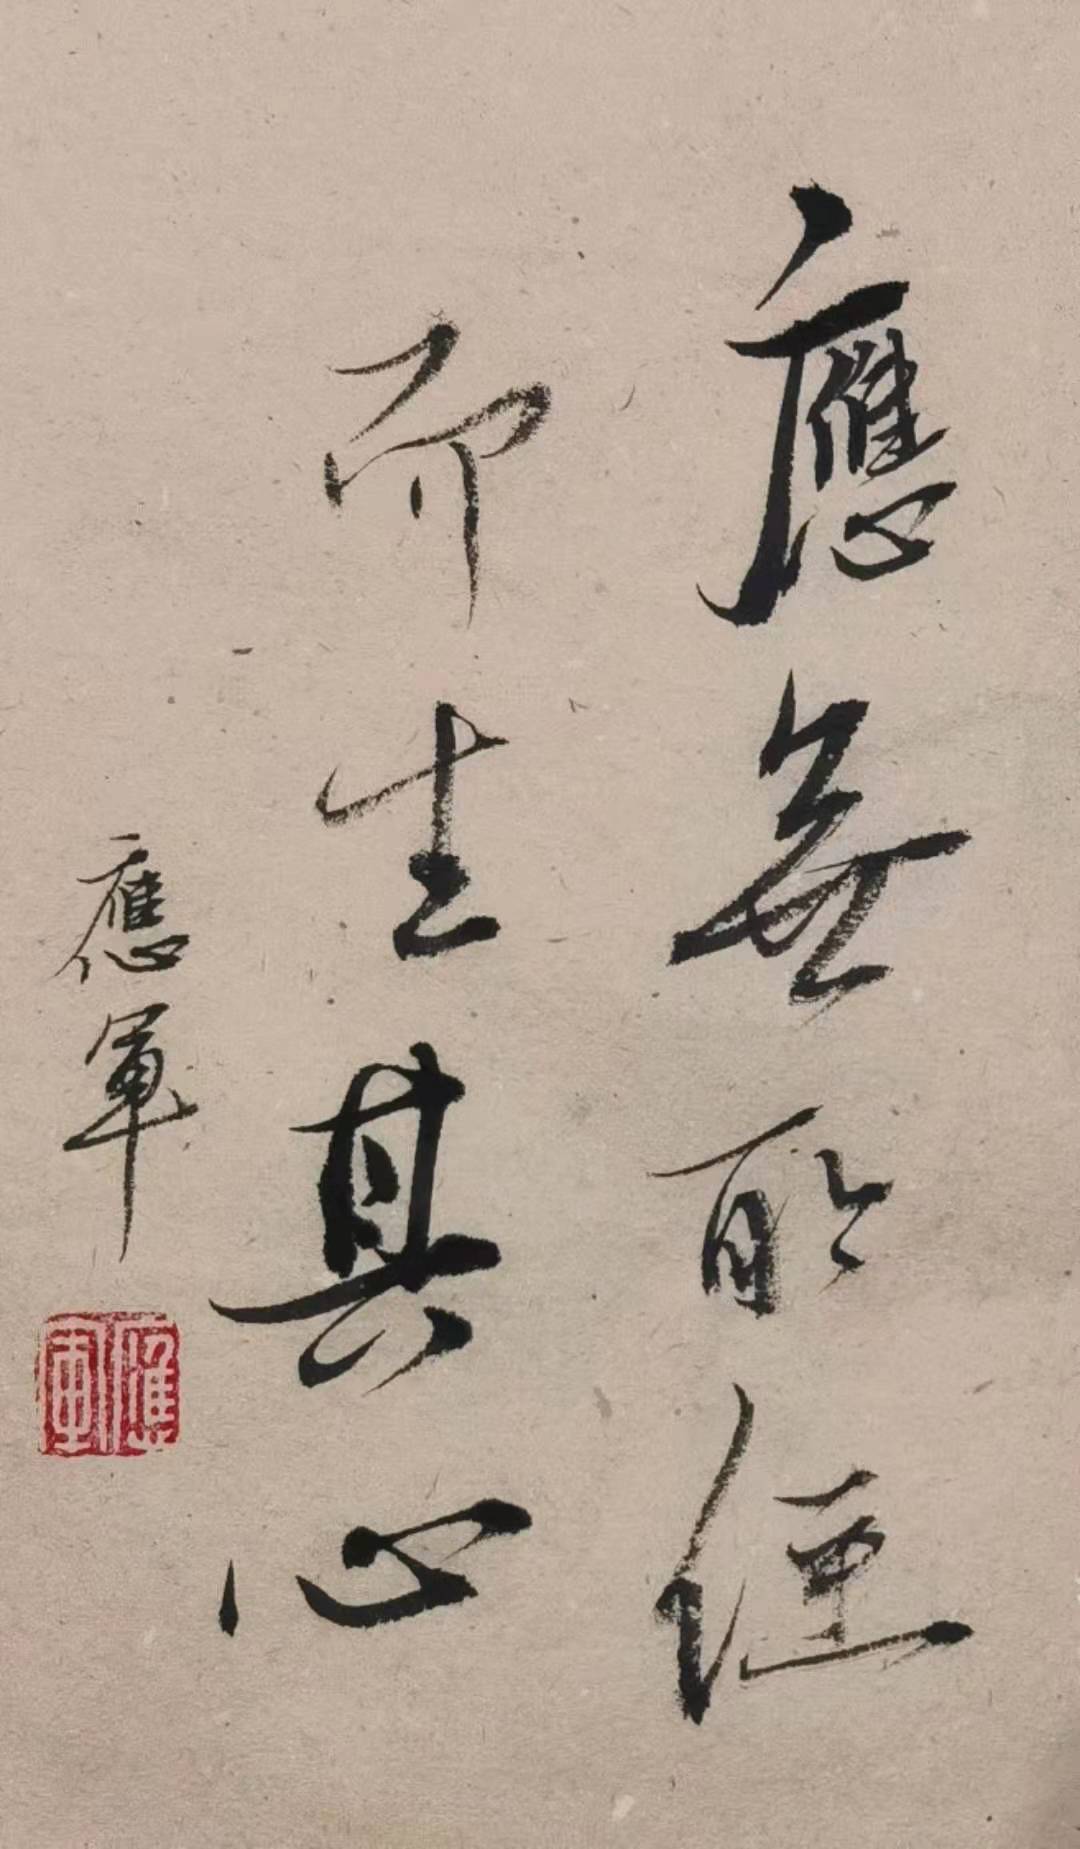 應無所住
而生其心
應軍
應軍